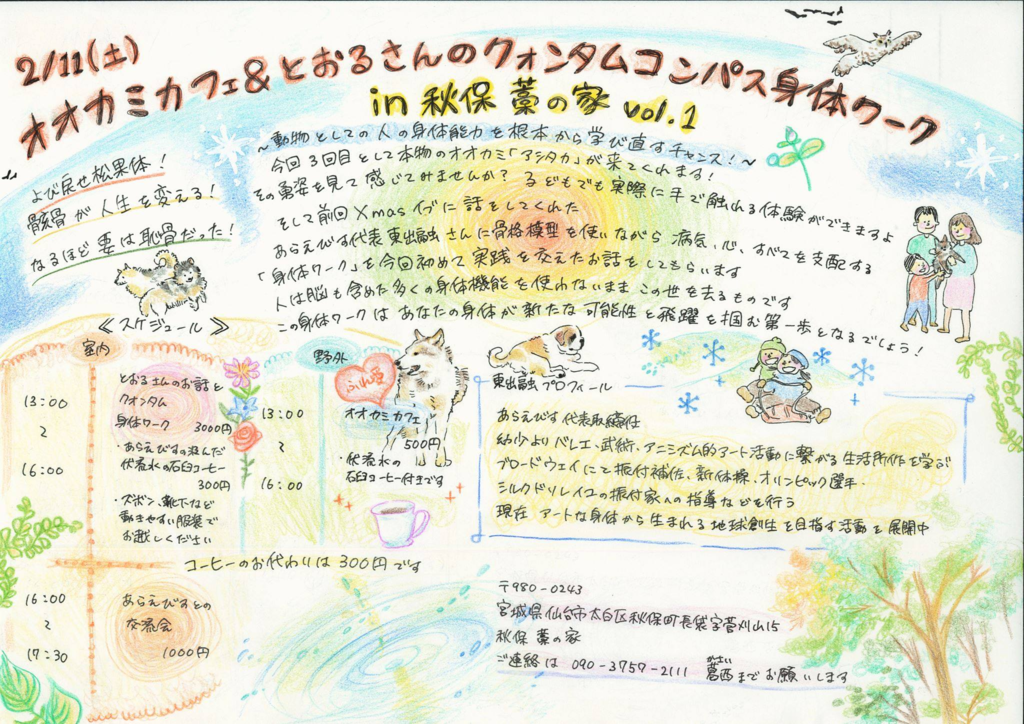 2/11(土)
オオカミカフェ&とおるさんのクォンタムコンパス身体ワーク
in 秋保 藁の家 vol.1
~動物としての人の身体能力を根本から学び直すチャンス!~
今回3回目として本物のオオカミ「アシタカ」が来てくれます!
その勇姿を見て感じてみませんか? 子どもでも実際に手で触れる体験ができますよ
そして前回Xmasイブに話をしてくれた
あらえびす代表 東出融さんに骨格模型を使いながら 病気、心、すべてを支配する
「身体ワーク」を今回初めて実践を交えたお話をしてもらいます
人は脳も含めた多くの身体機能を使わないまま この世を去るものです
この身体ワークは あなたの身体が新たな可能性と飛躍を掴む第一歩となるでしょう!
よび戻せ松果体!
骸骨が人生を変える!
なるほど要は恥骨だった!
≪スケジュール≫
室内
13:00
~
16:00
とおるさんのお話と
クォンタム
身体ワーク 3000円
・あらえびすの汲んだ
伏流水の石臼コーヒー
300円
・ズボン、靴下など
動きやすい服装で
お越しください
野外
13:00
~
16:00
ふれ愛
オオカミカフェ
500円
・伏流水の
石臼コーヒー付きです
コーヒーのお代わりは300円です
16:00
~
17:30
あらえびすとの
交流会
1000円
東出融プロフィール
あらえびす代表取締任
幼少よりバレエ、武術、アニミズム的アート活動に繋がる生活所作を学ぶ
ブロードウェイにて振付補佐、新体操、オリンピック選手、
シルクドソレイユの振付家への指導などを行う
現在 アートな身体から生まれる地球創生を目指す活動を展開中
〒980-0243
宮城県仙台市太白区秋保町長袋字菅刈山15
秋保 藁の家
ご連絡は 090-3757-2111 葛西(かさい)までお願いします